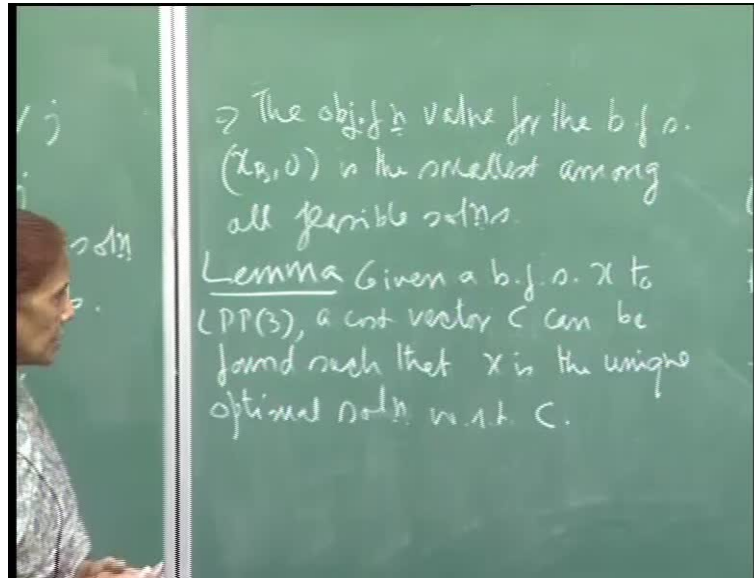 j
j
soln
⇒ The obj. fn value for the b.f.s.
(x_B, 0) is the smallest among
all feasible solns.
Lemma Given a b.f.s. x to
LPP(3), a cost vector C can be
found such that x is the unique
optimal soln w.r.t. C.